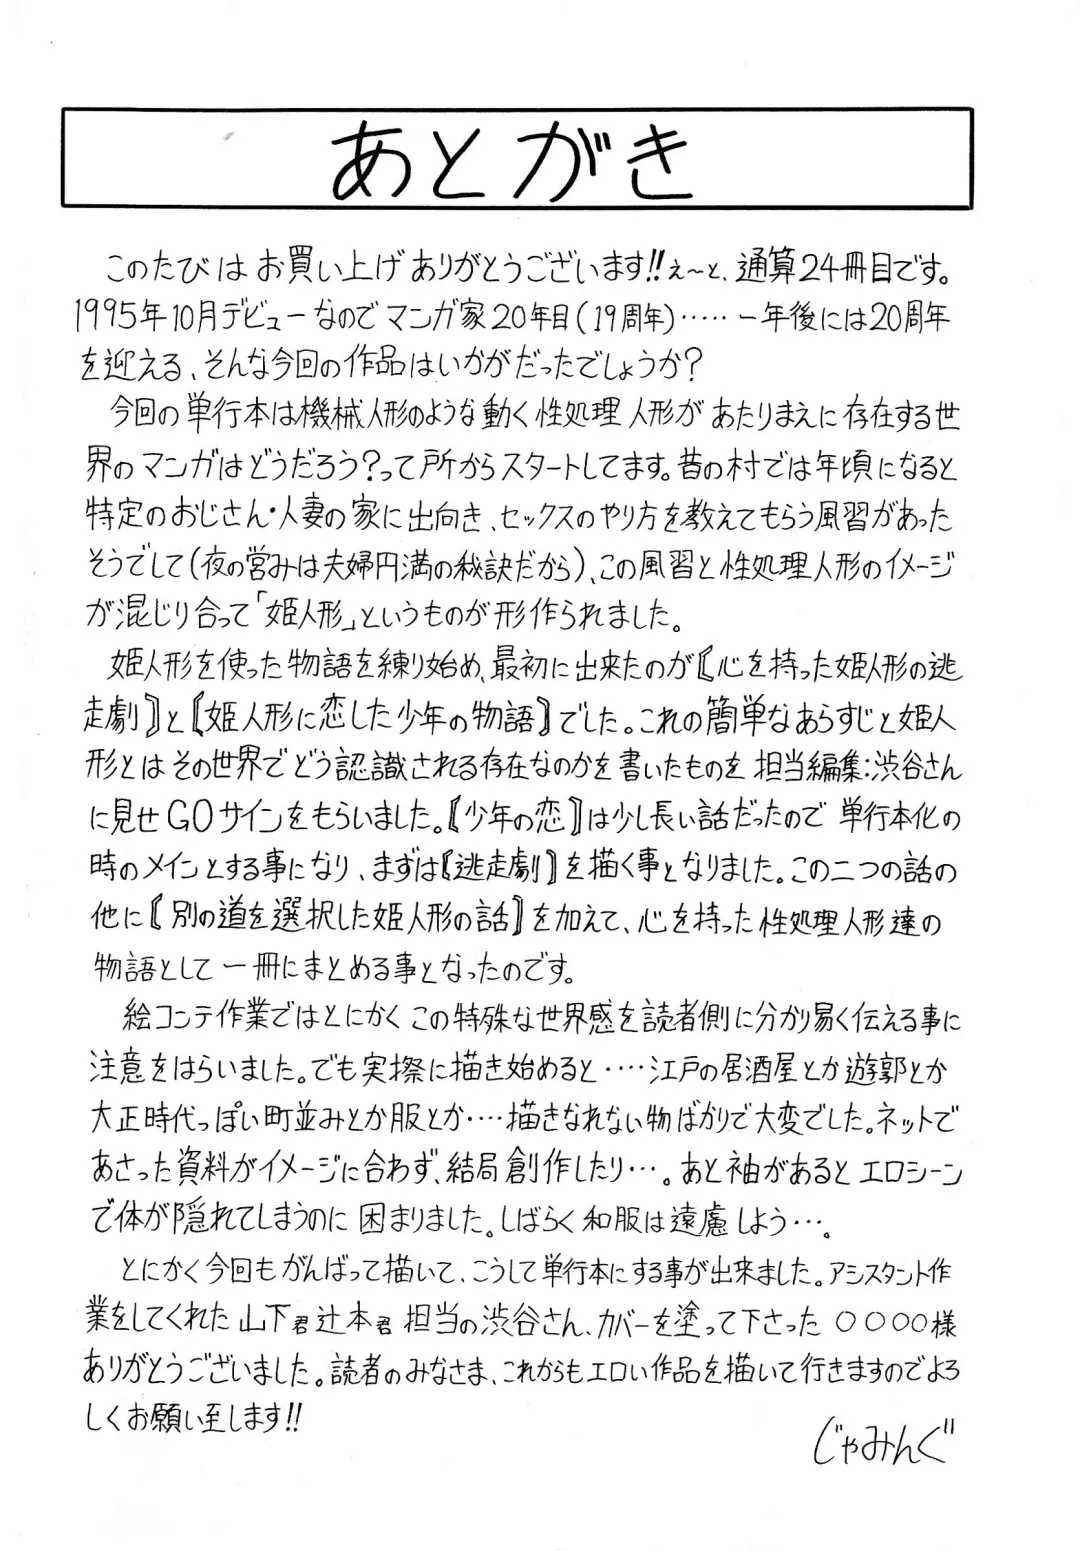 あとがき
このたびはお買い上げありがとうございます!!え〜と、通算24冊目です。
1995年10月デビューなのでマンガ家20年目(19周年)‥‥‥一年後には20周年
を迎える、そんな今回の作品はいかがだったでしょうか?
今回の単行本は機械人形のような動く性処理人形があたりまえに存在する世
界のマンガはどうだろう?って所からスタートしてます。昔の村では年頃になると
特定のおじさん・人妻の家に出向き、セックスのやり方を教えてもらう風習があった
そうでして(夜の営みは夫婦円満の秘訣だから)、この風習と性処理人形のイメージ
が混じり合って「姫人形」というものが形作られました。
姫人形を使った物語を練り始め、最初に出来たのが〖心を持った姫人形の逃
走劇〗と〖姫人形に恋した少年の物語〗でした。これの簡単なあらすじと姫人
形とはその世界でどう認識される存在なのかを書いたものを担当編集:渋谷さん
に見せGOサインをもらいました。〖少年の恋〗は少し長い話だったので単行本化の
時のメインとする事になり、まずは〖逃走劇〗を描く事となりました。この二つの話の
他に〖別の道を選択した姫人形の話〗を加えて、心を持った性処理人形達の
物語として一冊にまとめる事となったのです。
絵コンテ作業ではとにかくこの特殊な世界感を読者側に分かり易く伝える事に
注意をはらいました。でも実際に描き始めると‥‥江戸の居酒屋とか遊郭とか
大正時代っぽい町並みとか服とか‥‥描きなれない物ばかりで大変でした。ネットで
あさった資料がイメージに合わず、結局創作したり‥‥。あと袖があるとエロシーン
で体が隠れてしまうのに困りました。しばらく和服は遠慮しよう‥‥。
とにかく今回もがんばって描いて、こうして単行本にする事が出来ました。アシスタント作
業をしてくれた山下君辻本君担当の渋谷さん、カバーを塗って下さった〇〇〇〇様
ありがとうございました。読者のみなさま、これからもエロい作品を描いて行きますのでよろ
しくお願い至します!!
じゃみんぐ